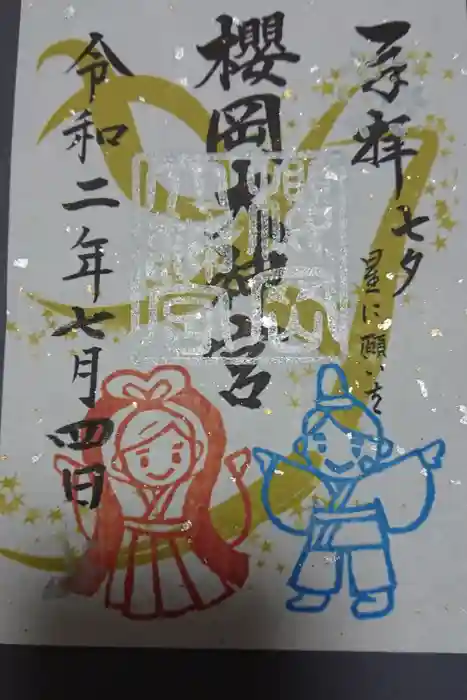 奉拝
七夕
星に願いを
櫻岡大神宮
令和二年七月四日